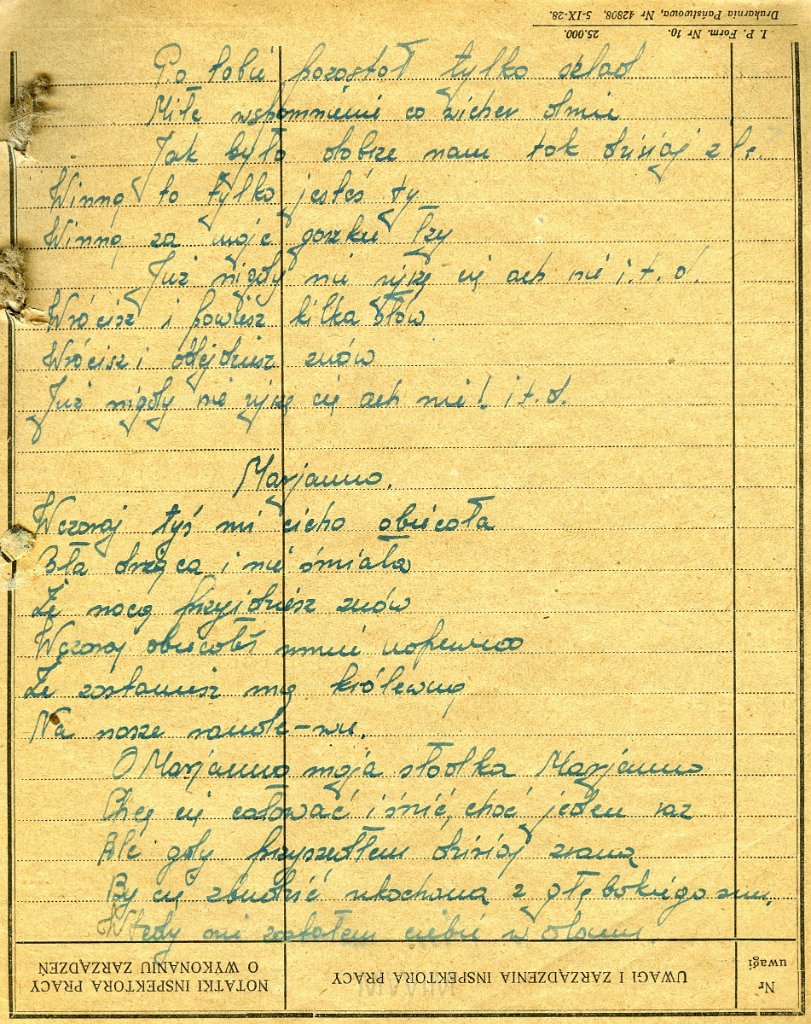 I. P. Form. Nr 10. 25.000. Drukarnia Państwowa, Nr 42808. 5-IX-28.
Po tobie pozostał tylko ślad
Miłe wspomnienie co wicher dmie
Jak było dobrze nam tak dzisiaj źle.
Winną to tylko jesteś ty
Winną za moje gorzkie łzy
Już nigdy nie ujżę cię ach nie i.t.d.
Wrócisz i powiesz kilka słów
Wrócisz i odejdziesz znów
Już nigdy nie ujżę cię ach nie! i.t.d.
Marjanno.
Wczoraj tyś mi cicho obiecała
Była drżąca i nie śmiała
Że nocą przyjdziesz znów
Wczoraj obiecałeś mnie napewno
Że zostaniesz mą królewną
Na nasze
O Marjanno moja słodka Marjanno
Chcę cię całować i śnić, choć jeden raz
Ale gdy przyszedłem dzisiaj zraną
By cię zbudzić ukochaną z głębokiego snu.
Wtedy nie zastałem ciebie w domu.
Nr uwagi
UWAGI I ZARZĄDZENIA INSPEKTORA PRACY
NOTATKI INSPEKTORA PRACY O WYKONANIU ZARZĄDZEŃ